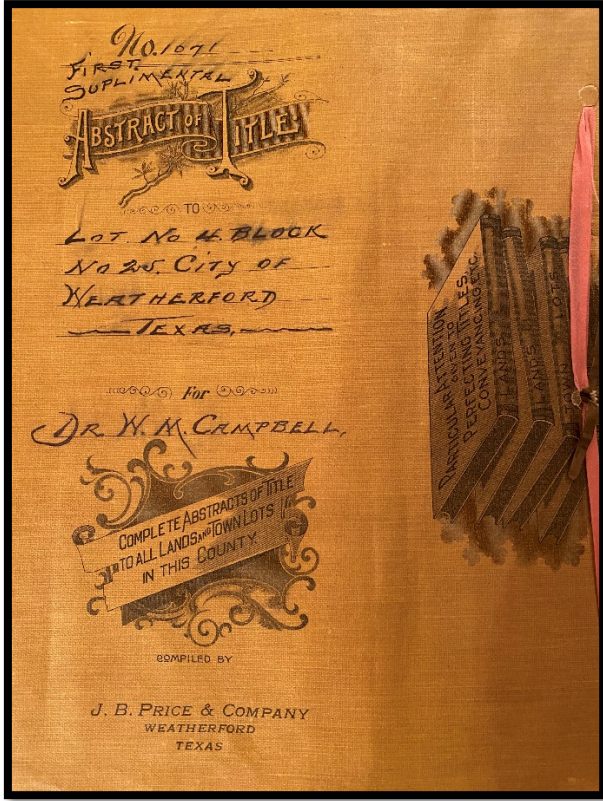 No. 1071
FIRST
SUPLIMENTAL
ABSTRACT OF TITLE
TO
LOT No 4. BLOCK
No 25. City OF
WEATHERFORD
TEXAS,
For
DR W. M. CAMPBELL,
COMPLETE ABSTRACTS OF TITLE
TO ALL LANDS AND TOWN LOTS
IN THIS COUNTY.
COMPILED BY
J. B. PRICE & COMPANY
WEATHERFORD
TEXAS
PARTICULAR ATTENTION
GIVEN TO
PERFECTING TITLES,
CONVEYANCING, ETC.
LANDS
LANDS
LOTS